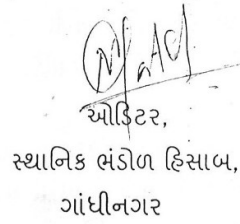 ઓડિટર,
સ્થાનિક ભંડોળ હિસાબ,
ગાંધીનગર